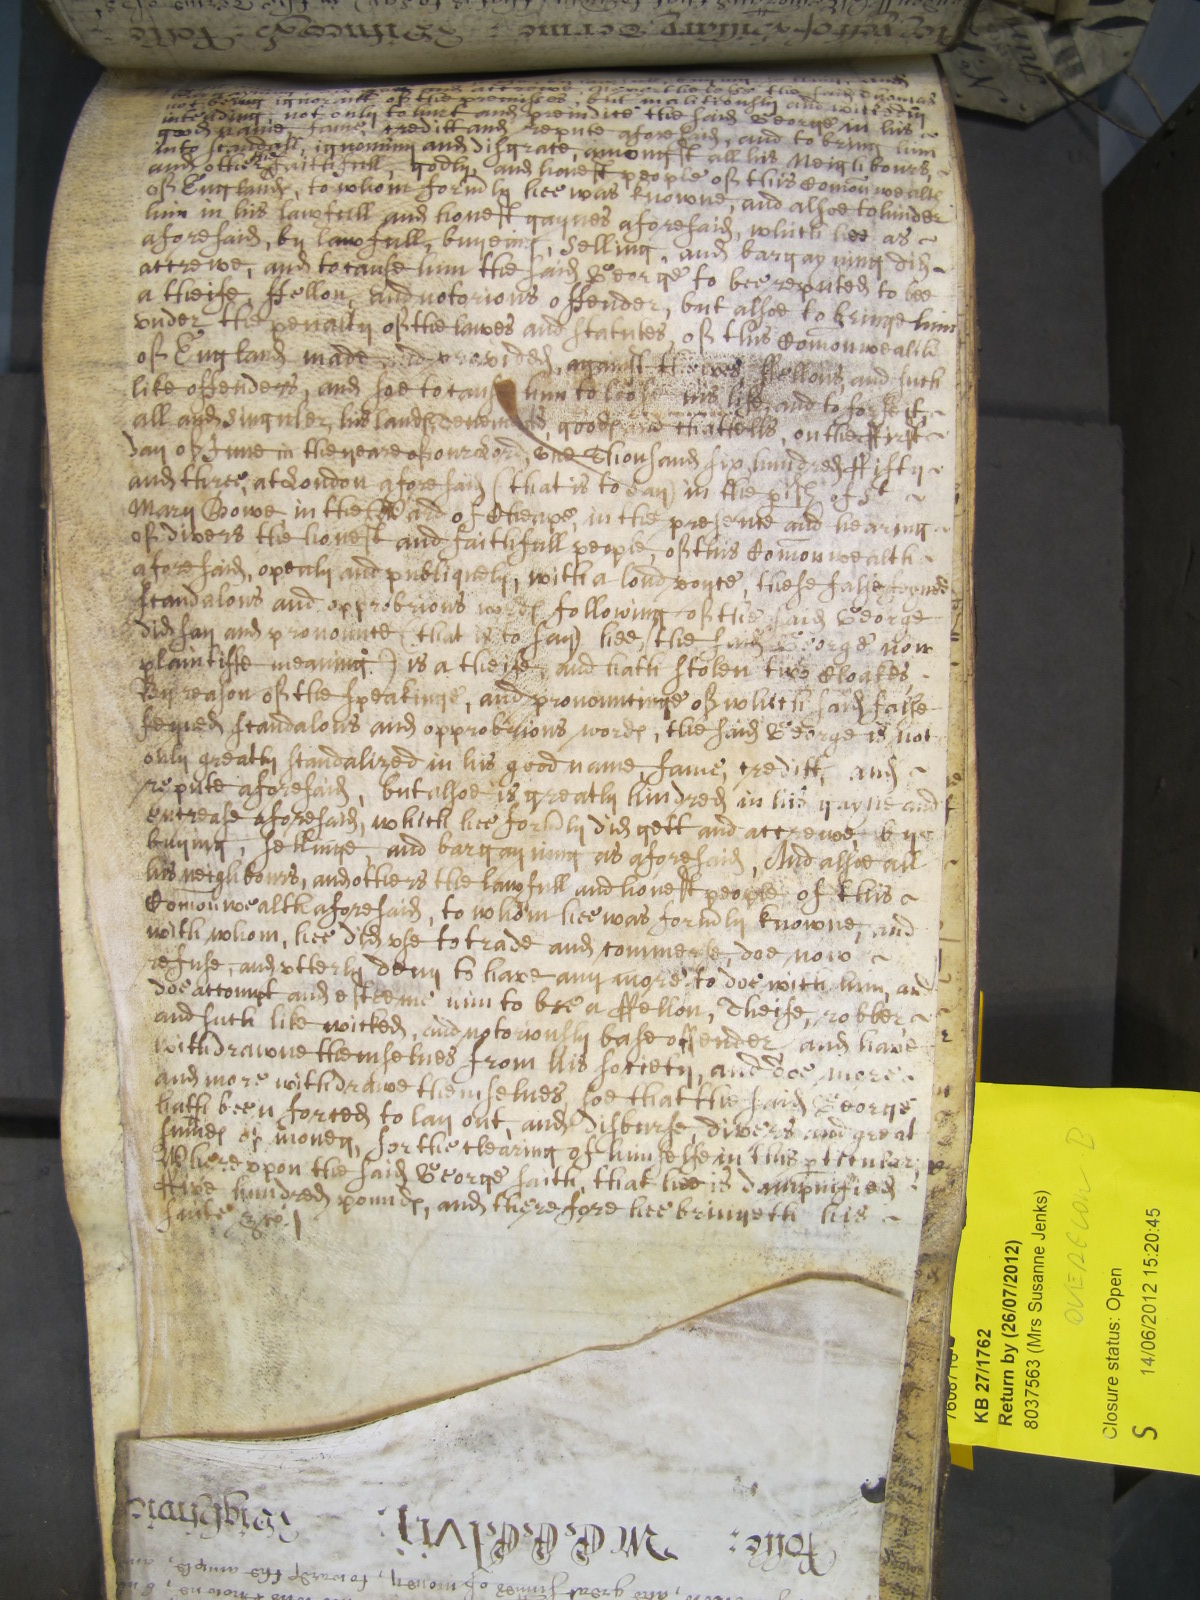 not being ignorant of the premises, but malitiously and wickedly
intending, not only to hurt and preiudice the said George in his
good name, fame, creditt and repute aforesaid, and to bring him
into scandall, ignominy and disgrace, amongst all his Neighbours,
and other the faithfull, godly, and honest people of this Comonwealth
of England, to whom formly hee was knowne, and alsoe to hinder
him in his lawfull and honest gaynes aforesaid, which hee as
aforesaid, by lawfull, buyeing, Selling, and bargayning did
accrewe, and to cause him the said George to bee reputed to bee
a theife, ffellon, and notorious offender, but alsoe to bringe him
vnder the penalty of the lawes and statutes, of this Comonwealth
of England made and provided, against theives ffellons, and such
like offenders, and soe to cause him to loose his life, and to forfeit
all and singuler, his lands, Tenemts, goods and chattells, on the ffirst
day of June in the yeare of our Lord, One Thousand six hundred ffifty
and three, at London aforesaid (that is to say) in the pish of St
Mary Bowe in the Ward of Cheape, in the presence and hearing
of divers the honest and faithfull people, of this Comonwealth
aforesaid, openly and publiquely, with a loud voyce, these false feyned
scandalous and opprobrious words following of the said George
did say and pronounce (that is to say) hee (the said George now
plaintiffe meaning) is a theife, and hath stolen two Cloakes,
By reason of the speakinge, and pronouncinge of which said false
feyned scandalous and opprobrious words, the said George is not
only greatly scandalized in his good name, fame, creditt, and
repute aforesaid, but alsoe is greatly hindred in his gayne and
encrease aforesaid, which hee formly did gett and accrewe by
buying, sellinge and bargayning as aforesaid, And alsoe all
his neighbours, and others the lawfull and honest people of this
Comonwealth aforesaid, to whom hee was formly knowne, and
with whom, hee did vse to trade and commerse, doe now
refuse, and vtterly deny to have any more to doe with him, and
doe accompt and esteeme him to bee a ffellon, Theife, robber
and such like wicked, and notoriously base offender and have
withdrawne themselues from his society, and doe more
and more withdrawe themselues, soe that the said George
hath been forced to lay out, and disburse, divers and great
sumes of money, for the clearing of himselfe in this pticular,
Wherevpon the said George saith, that hee is dampnified
ffive hundred pounds, and therefore hee bringeth his
suite &c.
KB 27/1762
Return by (26/07/2012)
8037563 (Mrs Susanne Jenks)
Closure status: Open
S 14/06/2012 15:20:45